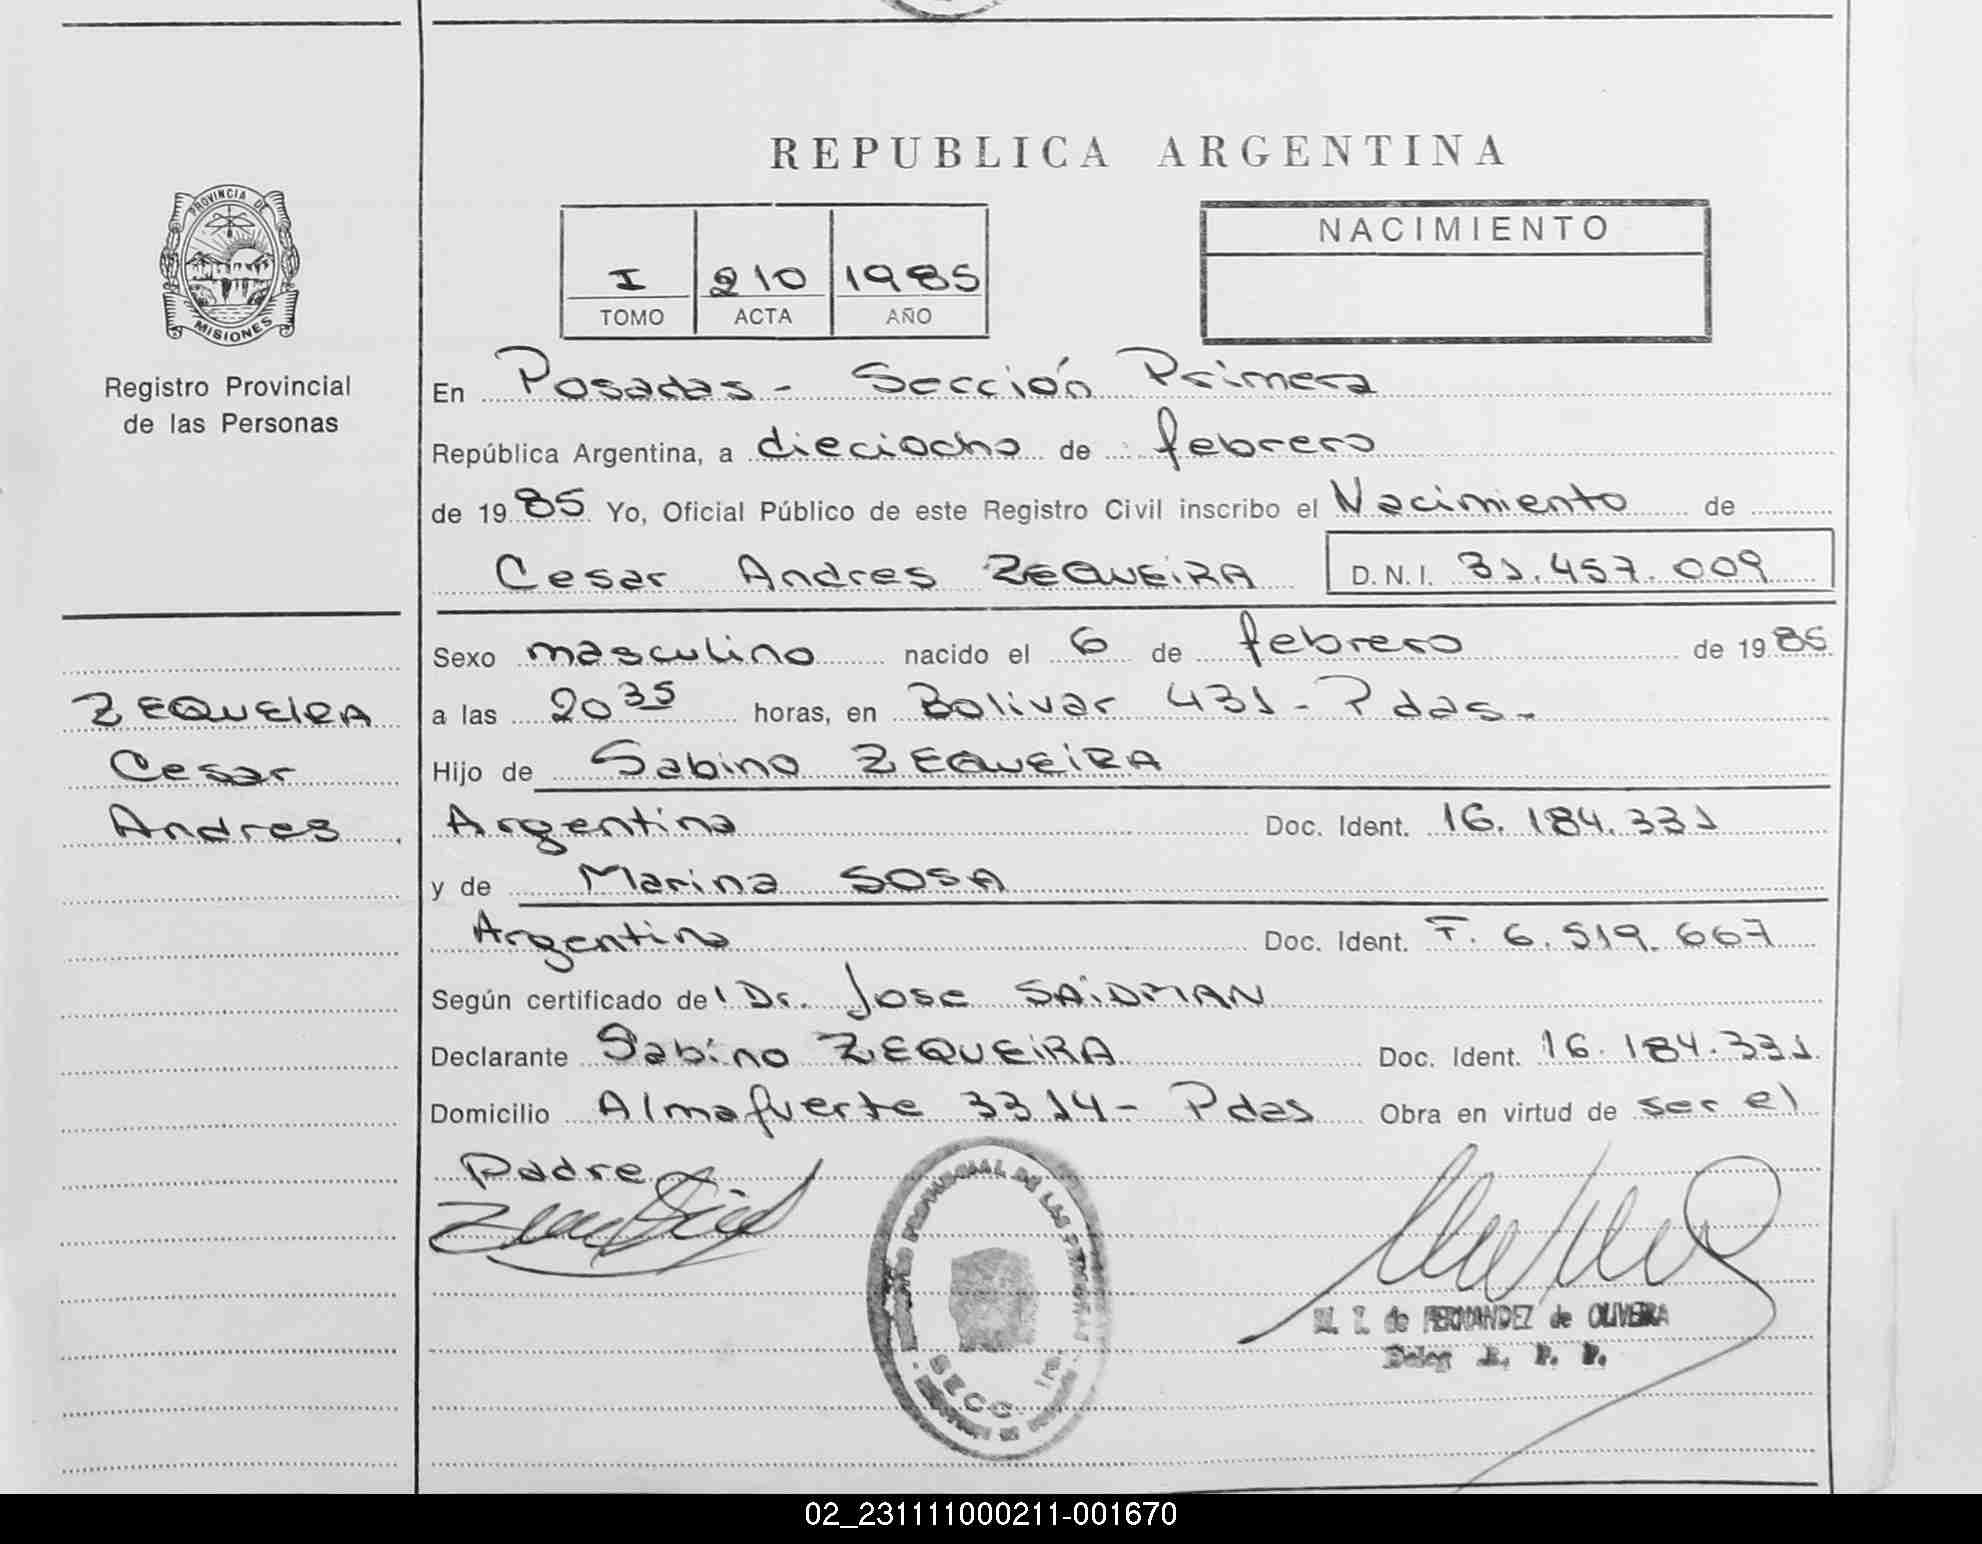 REPUBLICA ARGENTINA
PROVINCIA DE
MISIONES
Registro Provincial
de las Personas
I 210 1985
TOMO ACTA AÑO
NACIMIENTO
En Posadas - Sección Primera
República Argentina, a dieciocho de febrero
de 1985 Yo, Oficial Público de este Registro Civil inscribo el Nacimiento de
Cesar Andres ZEQUEiRA D.N.I. 31.457.009
Sexo masculino nacido el 6 de febrero de 1985
a las 20 35 horas, en Bolivar 431 - Pdas -
Hijo de Sabino ZEQUEiRA
Argentina Doc. Ident. 16.184.331
y de Marina SOSA
Argentina Doc. Ident. F. 6.519.667
Según certificado de Dr. Jose SAiDMAN
Declarante Sabino ZEQUEiRA Doc. Ident. 16.184.331
Domicilio Almafuerte 3314 - Pdas Obra en virtud de ser el
Padre
ZEQUEIRA
Cesar
Andres
PROVINCIAL DE LAS PERSONAS
SECC. 1ra.
M. I. de FERNANDEZ de OLIVEIRA
Deleg R. P. P.
02_231111000211-001670